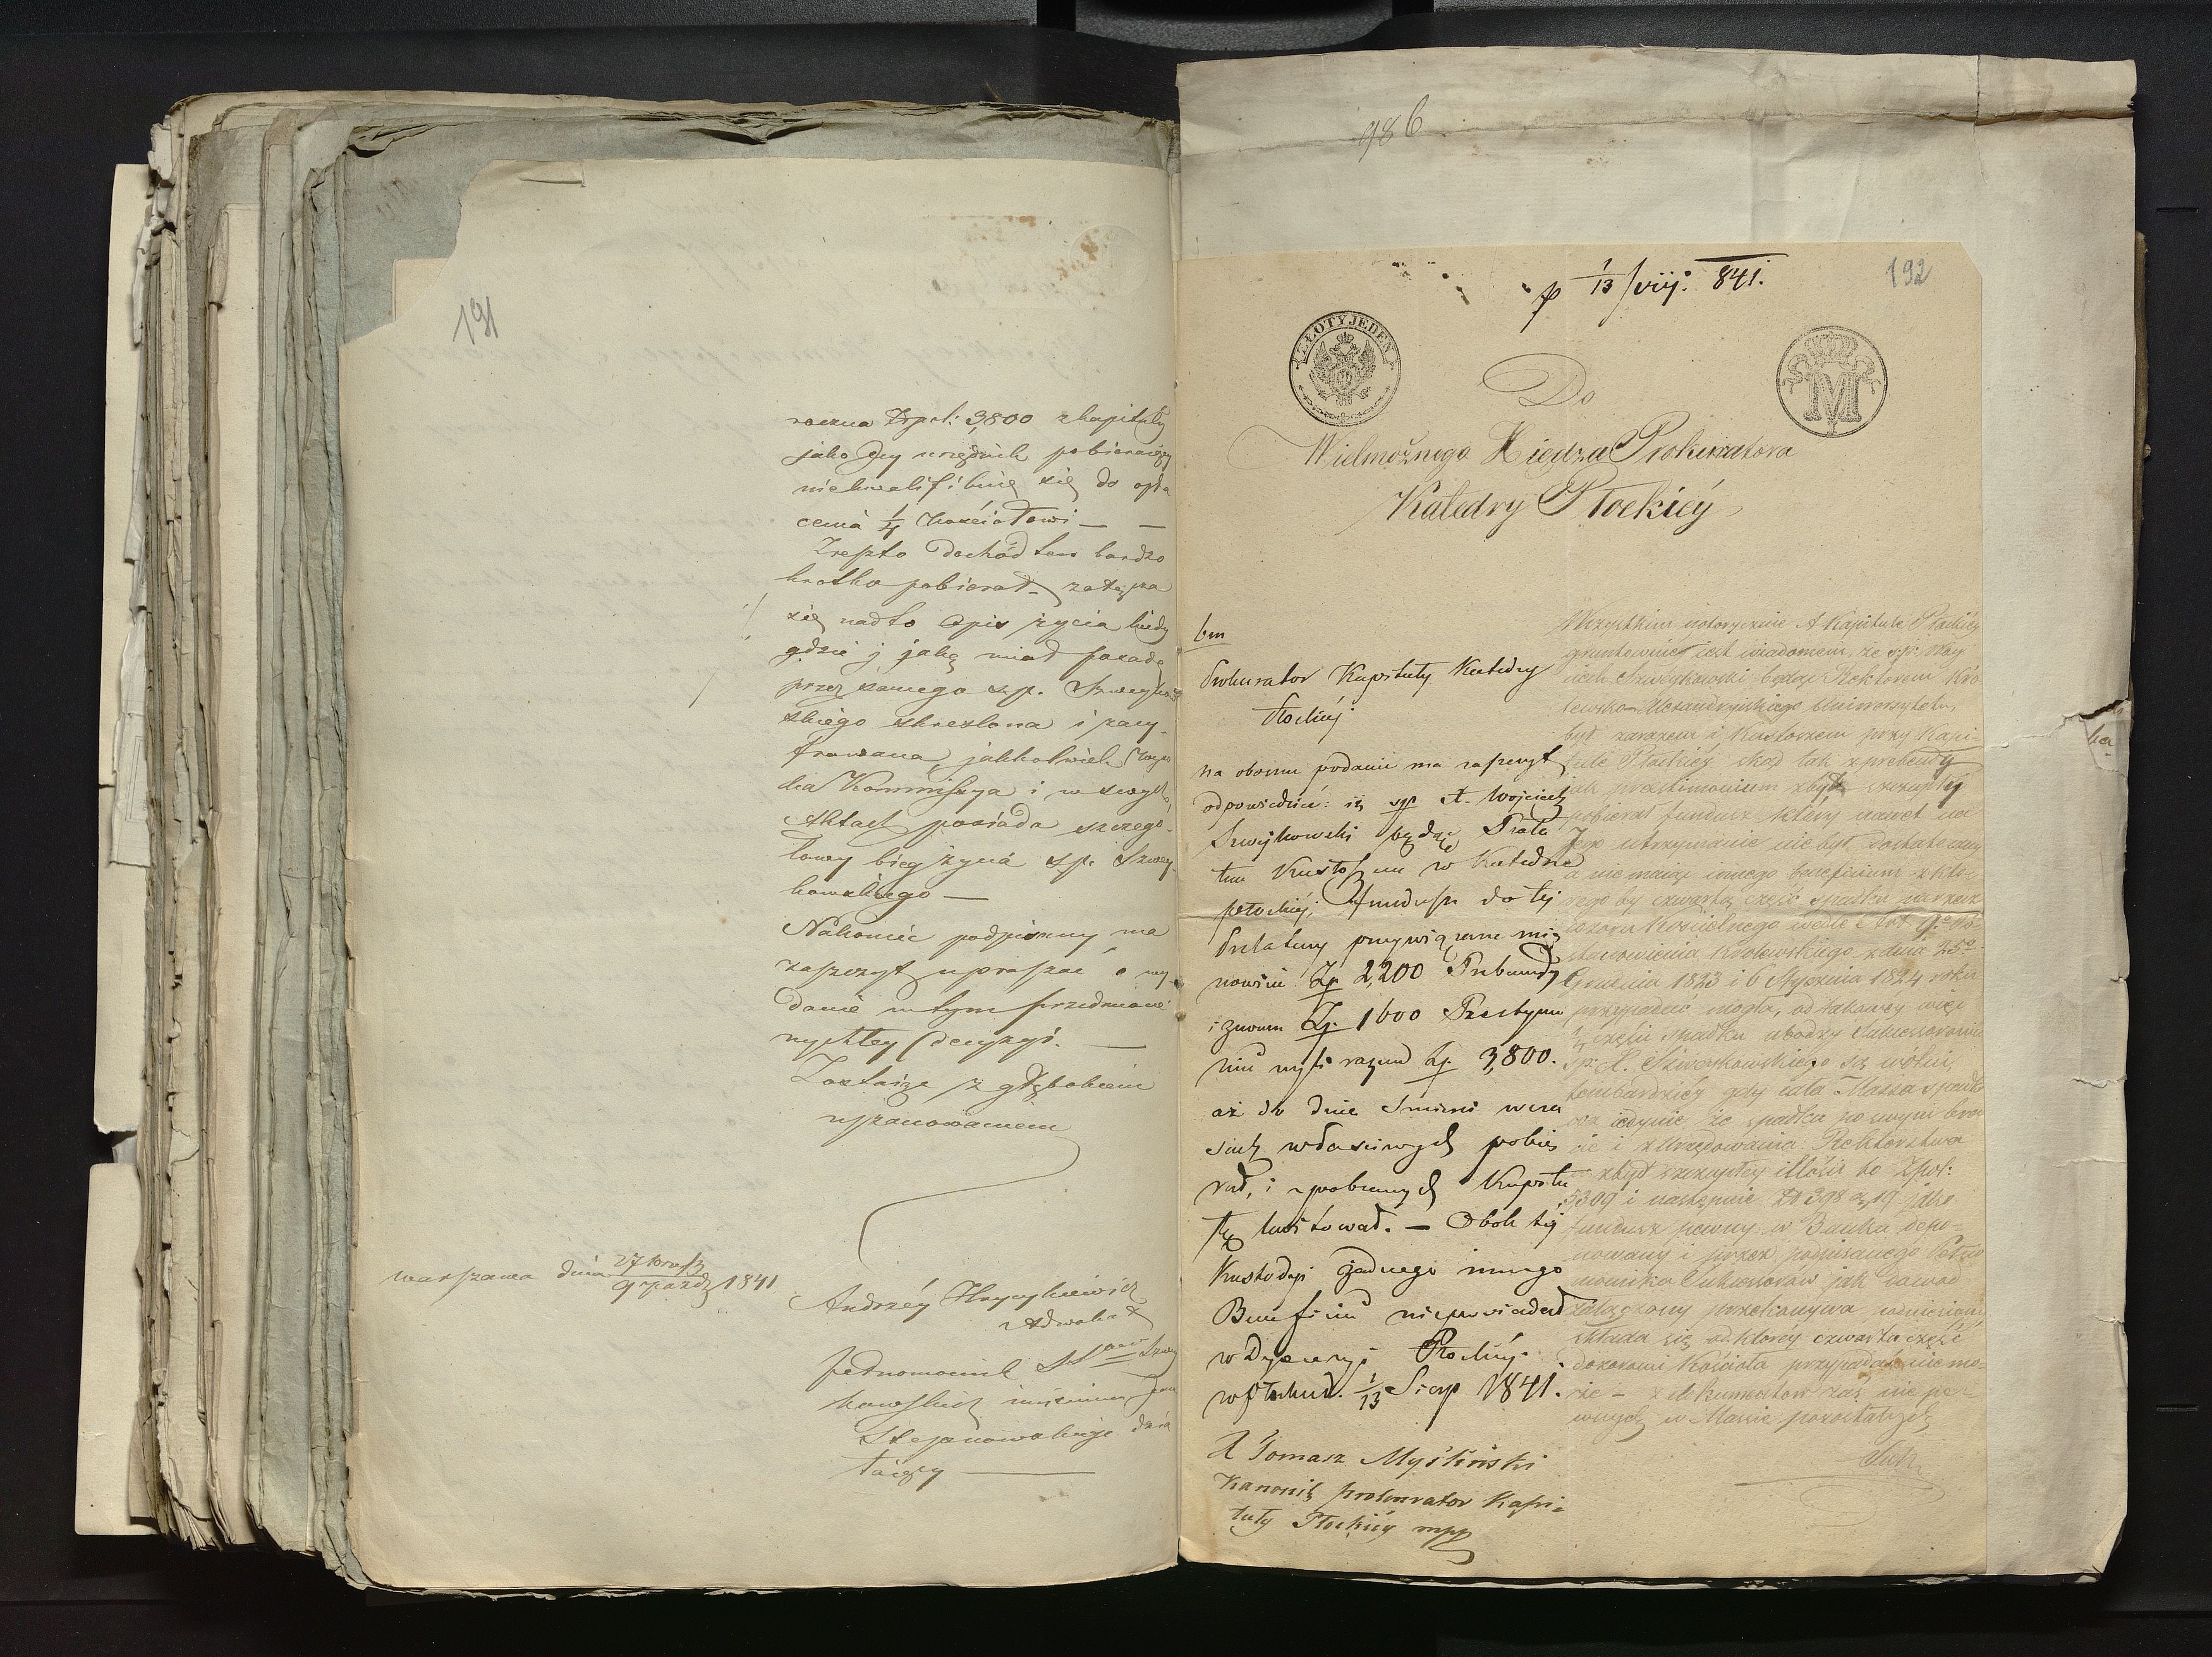 191
roczna Zrpol: 3,800 z kapituły
jako przy urzędzie pobieraiący
niekwalifikuie się do opła
cenia 1/4 Kościołowi — —
Zresztą Dochód ten bardzo
krótko pobierał załącza
się nadto Opis życia kiedy
gdzie j jaką miał posadę
przez samego ś.p. Szweykow
skiego skreślona i pary
frowana, jakkolwiek
Kommissya i w swych
Aktach posiada szczegó
łowy bieg życia ś.p. Szwey
kowskiego —
Nakoniec podpisany ma
zaszczyt upraszać o wy
danie w tym przedmiocie
rychłey Decyzyi. —
Zostaiąc z głębokiem
uszanowaniem
Warszawa dnia 27 Wrześ / 9 Paźdz 1841
Andrzéy Hryckiewicz
Adwokat
Pełnomocnik SSrów Szwey
kowskich imieniem
Stepanowskiego dzia
łaiący —
986
192
p 1/13 /viij. 841.
ZŁOTY JEDEN
M
Do
Wielmożnego Xiędza Prokuratora
Katedry Płockiéy
Prokurator Kapituły Katedry
Płockiej
na obecne podanie ma zaszczyt
odpowiedzieć: iż śp X. Wojciech
Szwejkowski będąc Prała
tem Kustoszem w Katedrze
płockiej, Fundusz do tej
Prelatury przywiązane mia
nowicie Zp 2,200 Prebendy
i znowu Zp. 1600 Prestymo
nium czyli razem Zp. 3,800.
aż do dnia śmierci w cza
sach właściwych pobie
rał, i z pobranych Kapitu
łę kwitował. — Obok tej
Kustodyi żadnego innego
Beneficium nieposiadał
w Dyecezyi Płockiej.
w Płocku d. 1/13 Sierp 1841.
X Tomasz Myśliński
Kanonik prokurator Kapi=
tuły Płockiéy mpp
Wszystkim notorycznie A Kapitule Płockiéy
gruntownie jest wiadomem, że ś.p. Woy
ciech Szweykowski będąc Rektorem Kró
lewsko-Alexandryiskiego Uniwersytetu,
był zarazem i Kustoszem przy Kapi=
tule Płockiéy skąd tak z prebendy
jak prestimonium zbyt szczupły
pobierał fundusz który nawet na
Jego utrzymanie nie był dostateczny
a nie maiąc innego beneficium z któ=
rego by czwarta część spadku na rzecz
dozoru Kościelnego wedle Art 9go Po=
stanowienia Królewskiego z dnia 25go
Grudnia 1823 i 6 Stycznia 1824 roku
przypadać mogła, od takowéy więc
1/4 części spadku ubodzy Sukcessorowie
śp X. Szweykowskiego są wolni,
tembardziéy gdy cała Massa spadko
wa iedynie ze spadku po swym bra
cie i z Urzędowania Rektorstwa
zbyt szczupłey ilości bo Zpol:
5309 i następnie Zł 398 gr 19 jako
fundusz pewny w Banku depo=
nowany i przez podpisanego Pełno
mocnika Sukcessorów jak dowód
załączony przekonywa podniesiony
składa się, od któréy czwarta część
dozorowi Kościoła przypadać nie mo=
że — z dokumentów zaś nie pe
wnych w Massie pozostałych